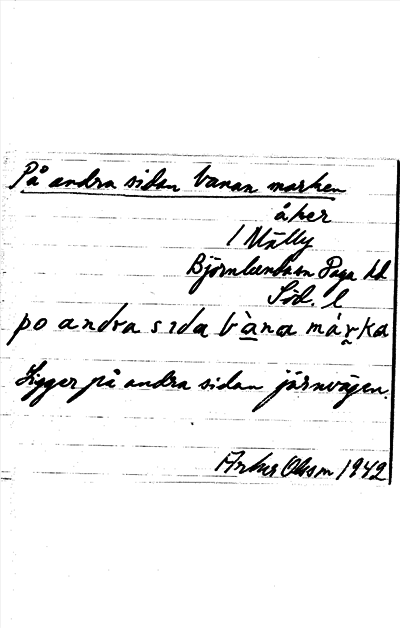 På andra sidan banan marken
åker
1 Mälby
Björnlunda sn Daga hd
Söd. l
po andra sida bàna márka
Ligger på andra sidan järnvägen.
Arthur Olsson 1942